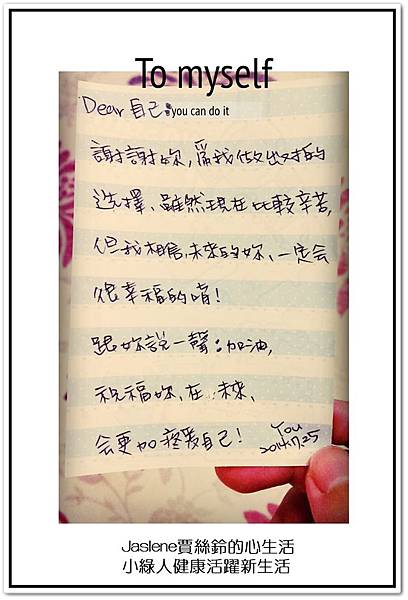 To myself
Dear 自己
you can do it
謝謝妳,為我做出對的
選擇、雖然現在比較辛苦,
但我相信,未來的妳、一定會
很幸福的唷!
跟妳說一聲:加油,
祝福妳、在未來、
會更加疼愛自己!
You
2014.7.25
Jaslene賈絲鈴的心生活
小綠人健康活躍新生活